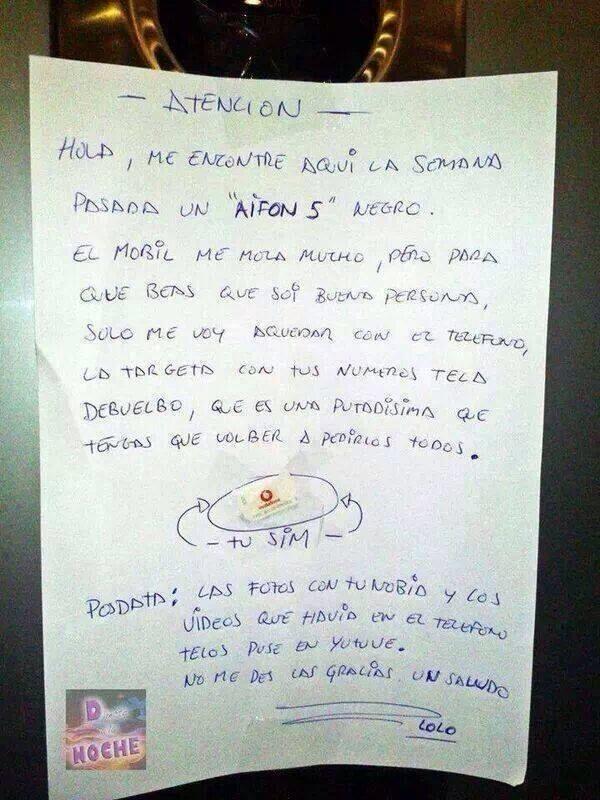 - ATENCION -
HOLA, ME ENCONTRE AQUI LA SEMANA
PASADA UN "AIFON 5" NEGRO.
EL MOBIL ME MOLA MUCHO, PERO PARA
QUE BEAS QUE SOI BUENA PERSONA,
SOLO ME VOY AQUEDAR CON EL TELEFONO,
LA TARGETA CON TUS NUMEROS TELA
DEBUELBO, QUE ES UNA PUTADISIMA QUE
TENGAS QUE VOLBER A PEDIRLOS TODOS.
vodafone
- TU SIM -
POSDATA: LAS FOTOS CON TU NOBIA Y LOS
VIDEOS QUE HAVIA EN EL TELEFONO
TELOS PUSE EN YUTUVE.
NO ME DES LAS GRACIAS. UN SALUDO
LOLO
D
NOCHE